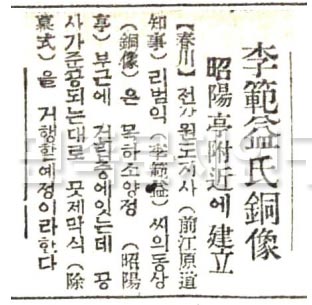 李範益氏銅像
昭陽亭附近에 建立
【春川】 전강원도지사 (前江原道
知事) 리범익 (李範益) 씨의동상
(銅像) 은 목하소양정 (昭陽
亭) 부근에 건립중에잇는데 공
사가준공되는대로 곳제막식 (除
幕式) 을 거행할예정이라한다